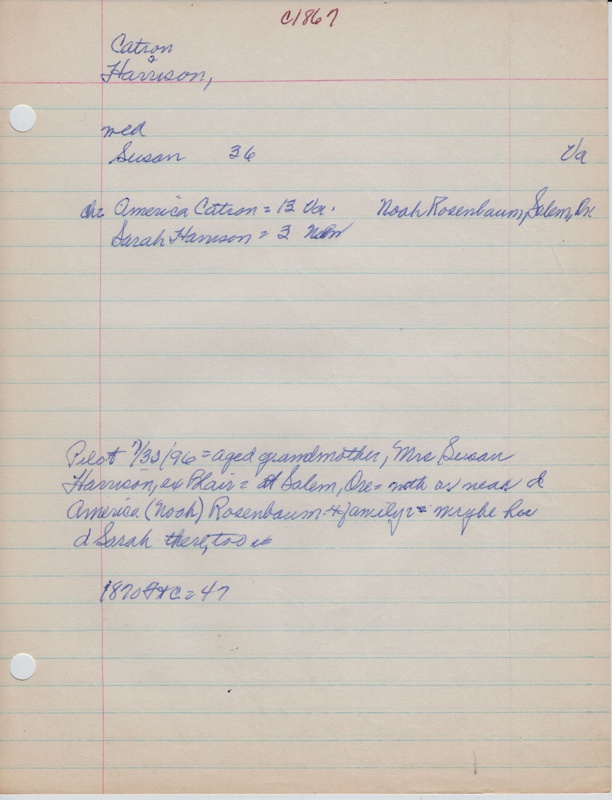 c1867
Catron
&
Harrison,
wed
Susan 36 Va
ch: America Catron = 13 Va. Noah Rosenbaum, Salem, Ore
Sarah Harrison = 3 Nebr
Pilot 7/30/96 = aged grandmother, Mrs Susan
Harrison, ex Blair = at Salem, Ore = with or near d
America (Noah) Rosenbaum & family = maybe her
d Sarah there, too
1870 = 47